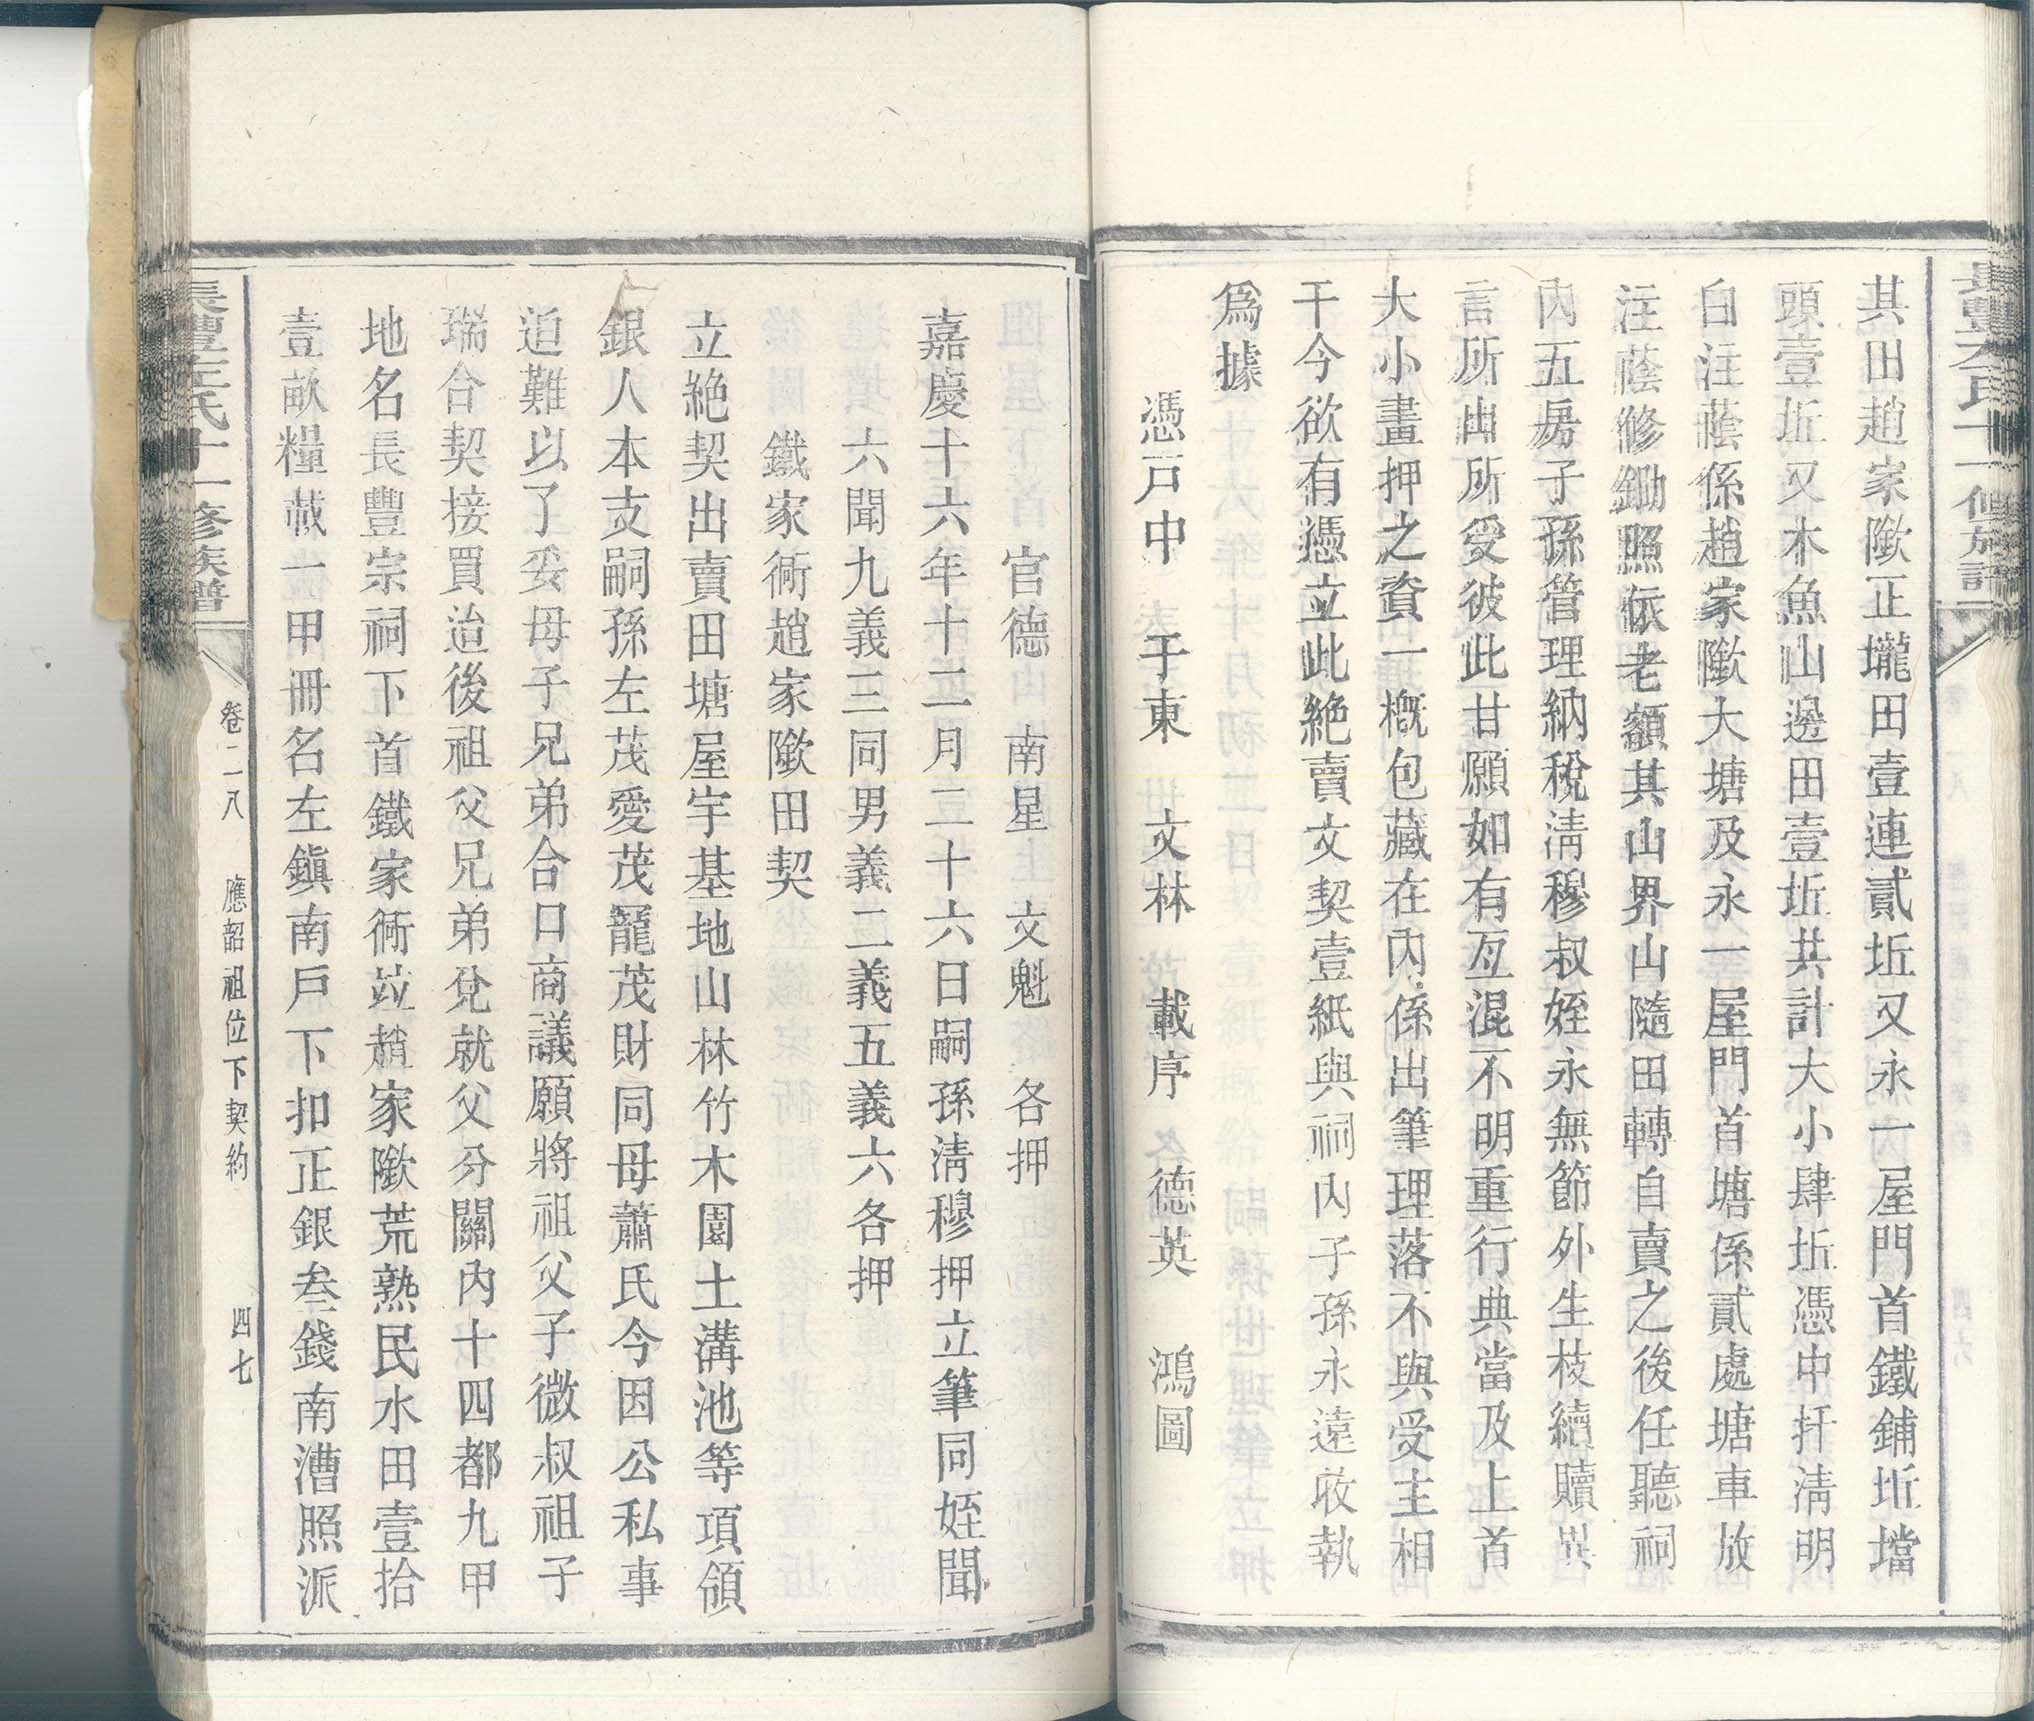 其田趙家隞正壠田壹連貳坵又永一屋門首鐵鋪坵壋
頭壹坵又木魚山邊田壹坵共計大小肆坵憑中扦淸明
白注蔭係趙家隞大塘及永一屋門首塘係貳處塘車放
注蔭修鋤照依老額其山界山隨田轉自賣之後任聽祠
內五房子孫管理納稅淸穆叔姪永無節外生枝續贖異
言所由所受彼此甘願如有互混不明重行典當及上首
大小畫押之資一槪包藏在內係出筆理落不與受主相
干今欲有憑立此絶賣文契壹紙與祠內子孫永遠收執
爲據
憑戸中 于東 文林 載序 德英 鴻圖
官德 南星 文魁 各押
嘉慶十六年十二月二十六日嗣孫淸穆押立筆同姪聞
六聞九義三同男義二義五義六各押
鐵家衕趙家隞田契
立絶契出賣田塘屋宇基地山林竹木園土溝池等項領
銀人本支嗣孫左茂愛茂寵茂財同母蕭氏今因公私事
迫難以了妥母子兄弟合口商議願將祖父子微叔祖子
瑞合契接買迨後祖父兄弟兌就父分關內十四都九甲
地名長豐宗祠下首鐵家衕竝趙家隞荒熟民水田壹拾
壹畝糧載一甲冊名左鎭南戸下扣正銀叁錢南漕照派
長豐左氏十一修族譜
卷二八 應韶祖位下契約 四七